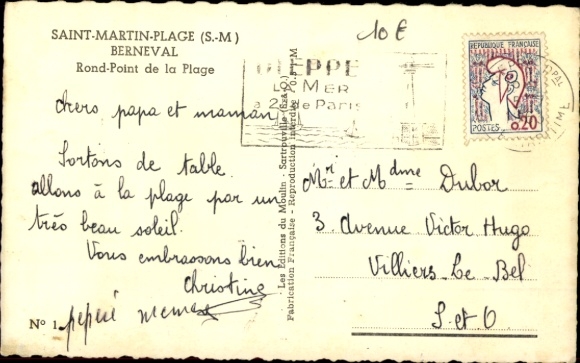 SAINT-MARTIN-PLAGE (S.-M)
BERNEVAL
Rond-Point de la Plage
10 €
chers papa et maman
Sortons de table.
allons à la plage par un
très beau soleil.
Vous embrassons bien
Christine
pépéré
N° 1
Les Editions du Moulin - Sartrouville (S.-&-O.)
Fabrication Française - Reproduction Interdite
DIEPPE
LA MER
de Paris
REPUBLIQUE FRANÇAISE
POSTES 0,20
Mr et Mdme Dubor
3 Avenue Victor Hugo
Villiers Le Bel
S et O